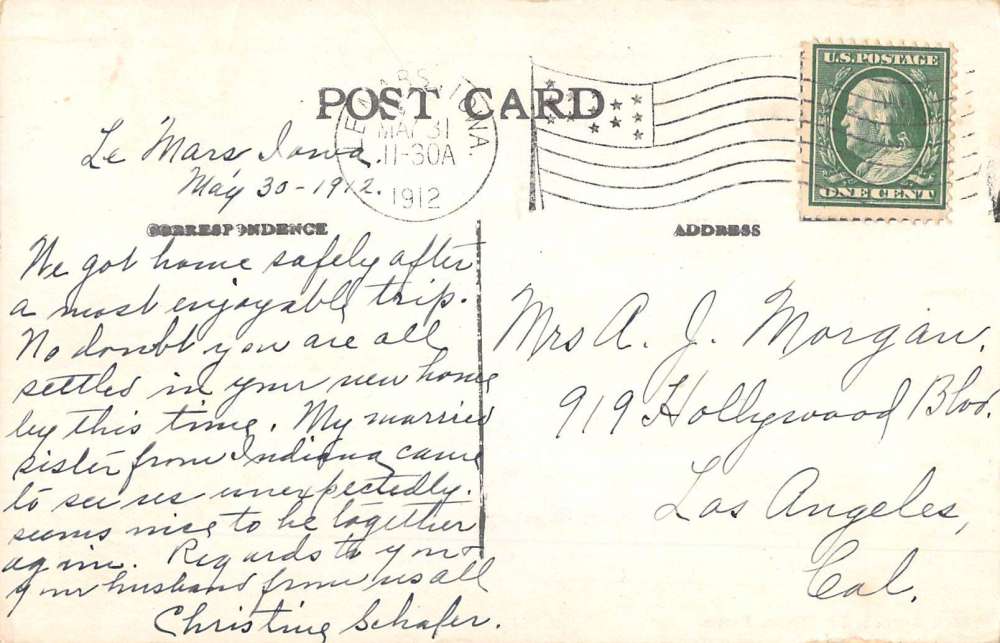 POST CARD
LE MARS IOWA.
MAY 31
11-30A
1912
U.S. POSTAGE
ONE CENT
Le Mars Iowa.
May 30-1912.
CORRESPONDENCE
We got home safely after
a most enjoyable trip.
No doubt you are all
settled in your new home
by this time. My married
sister from Indiana came
to see us unexpectedly.
seems nice to be together
again. Regards to you &
your husband from us all
Christine Schafer.
ADDRESS
Mrs A. J. Morgan.
919 Hollywood Blvd.
Los Angeles,
Cal.